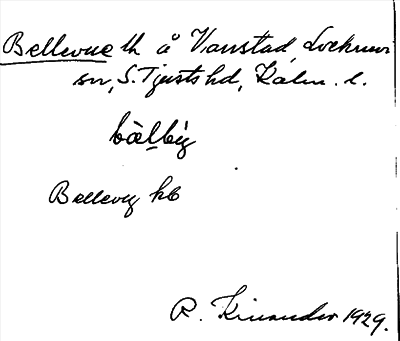 Bellevue lh å Vanstad Locknevi
sn, S. Tjusts hd, Kalm. l.
bälˈbiy
Bellevy kb
R. Kinander 1929.